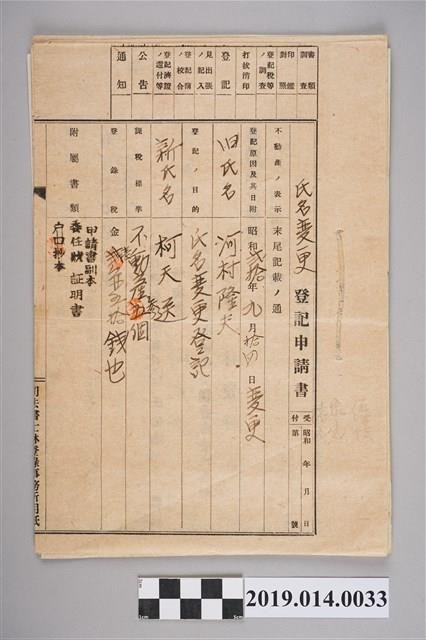 氏名變更 登記申請書
受付 昭和 年 月 日
第 號
不動產ノ表示 末尾記載ノ通
登記原因及其日附 昭和貳拾年九月拾四日變更
旧氏名 河村隆夫
登記ノ目的 氏名變更登記
新氏名 柯天送
課稅標準 不動產 個
登錄稅 金 錢也
附屬書類 申請書副本
委任狀 証明書
戶口抄本
書類調查
印鑑對照
登記稅等ノ調查
打拔消印
登記
見出張ノ記入
登記簿ノ校合
登記濟證ノ還付等
公告
通知
2019.014.0033